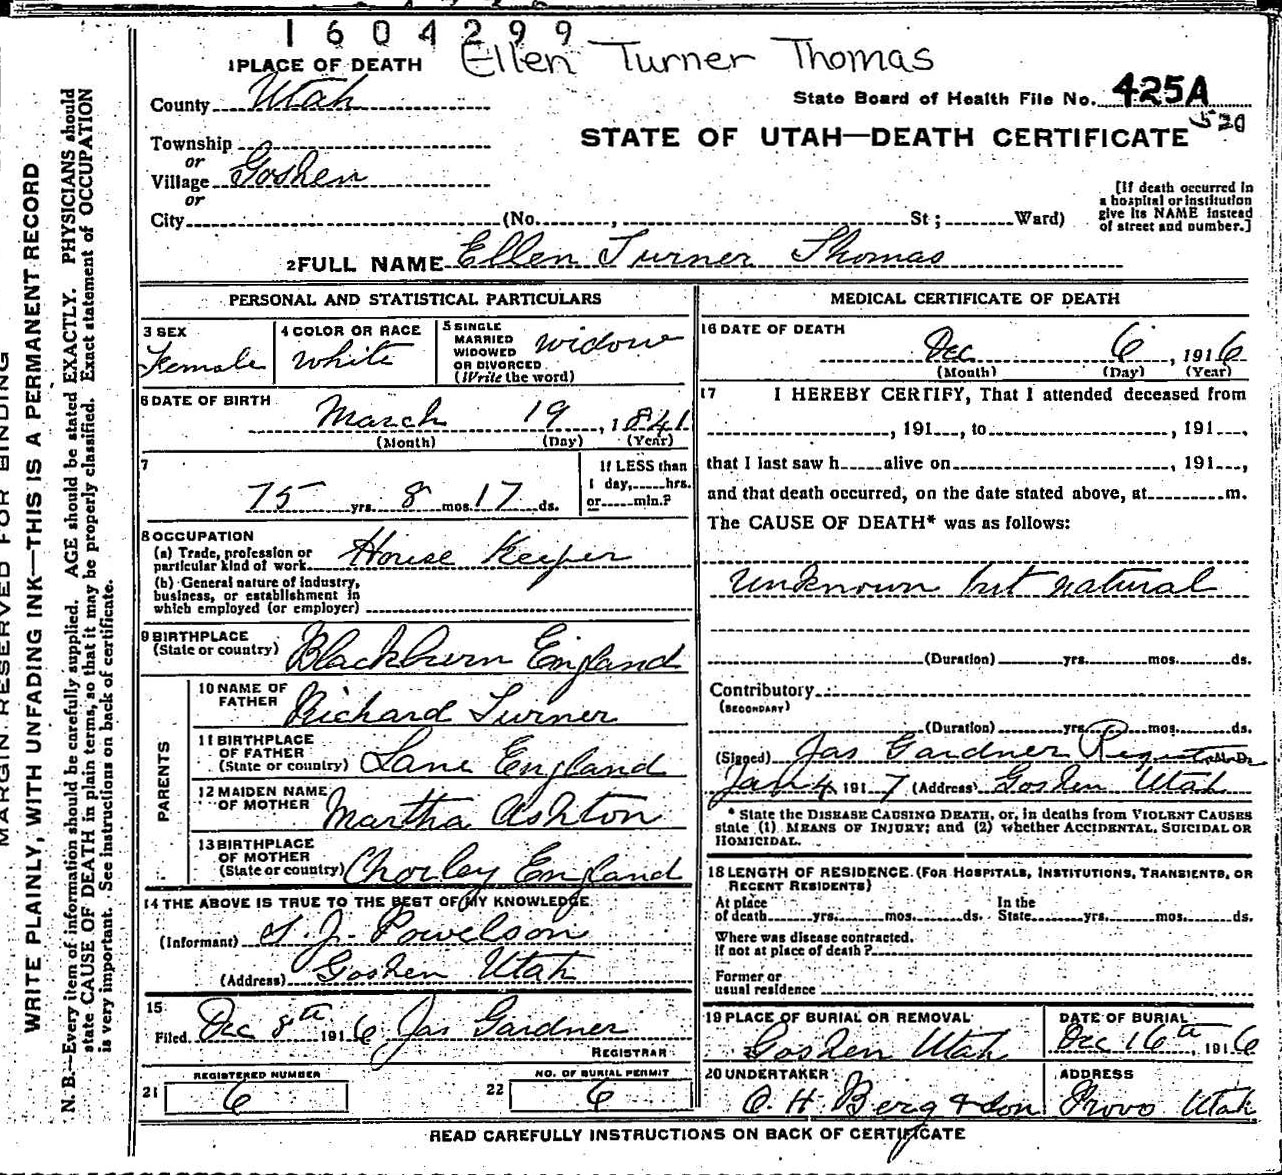 1604299
Ellen Turner Thomas
1 PLACE OF DEATH
County Utah
State Board of Health File No. 425A
520
Township
STATE OF UTAH—DEATH CERTIFICATE
or
Village Goshen
or
City (No. , St; Ward)
[If death occurred in
a hospital or institution
give its NAME instead
of street and number.]
2 FULL NAME Ellen Turner Thomas
PERSONAL AND STATISTICAL PARTICULARS
3 SEX
Female
4 COLOR OR RACE
White
5 SINGLE
MARRIED
WIDOWED
OR DIVORCED
(Write the word)
widow
6 DATE OF BIRTH
March 19, 1841
(Month) (Day) (Year)
7
75 yrs. 8 mos. 17 ds.
If LESS than
1 day, hrs.
or min.?
8 OCCUPATION
(a) Trade, profession or
particular kind of work House Keeper
(b) General nature of industry,
business, or establishment in
which employed (or employer)
9 BIRTHPLACE
(State or country) Blackburn England
PARENTS
10 NAME OF
FATHER Richard Turner
11 BIRTHPLACE
OF FATHER
(State or country) Lanc England
12 MAIDEN NAME
OF MOTHER Martha Ashton
13 BIRTHPLACE
OF MOTHER
(State or country) Chorley England
14 THE ABOVE IS TRUE TO THE BEST OF MY KNOWLEDGE
(Informant) S. J. Powelson
(Address) Goshen Utah
15
Filed Dec 8th 1916 Jas Gardner
REGISTRAR
21 REGISTERED NUMBER
6
22 NO. OF BURIAL PERMIT
6
MEDICAL CERTIFICATE OF DEATH
16 DATE OF DEATH
Dec 6, 1916
(Month) (Day) (Year)
17 I HEREBY CERTIFY, That I attended deceased from
, 191 , to , 191 ,
that I last saw h alive on , 191 ,
and that death occurred, on the date stated above, at m.
The CAUSE OF DEATH* was as follows:
unknown but natural
(Duration) yrs. mos. ds.
Contributory
(SECONDARY)
(Duration) yrs. mos. ds.
(Signed) Jas Gardner
Jan 4 1917 (Address) Goshen Utah
* State the DISEASE CAUSING DEATH, or, in deaths from VIOLENT CAUSES
state (1) MEANS OF INJURY; and (2) whether ACCIDENTAL, SUICIDAL OR
HOMICIDAL.
18 LENGTH OF RESIDENCE (FOR HOSPITALS, INSTITUTIONS, TRANSIENTS, OR
RECENT RESIDENTS)
At place
of death yrs. mos. ds.
In the
State yrs. mos. ds.
Where was disease contracted,
If not at place of death?
Former or
usual residence
19 PLACE OF BURIAL OR REMOVAL
Goshen Utah
DATE OF BURIAL
Dec 16th, 1916
20 UNDERTAKER
O. H. Berg & Son
ADDRESS
Provo Utah
READ CAREFULLY INSTRUCTIONS ON BACK OF CERTIFICATE
MARGIN RESERVED FOR BINDING
WRITE PLAINLY, WITH UNFADING INK—THIS IS A PERMANENT RECORD
N. B.—Every item of information should be carefully supplied. AGE should be stated EXACTLY. PHYSICIANS should
state CAUSE OF DEATH in plain terms, so that it may be properly classified. Exact statement of OCCUPATION
is very important. See instructions on back of certificate.